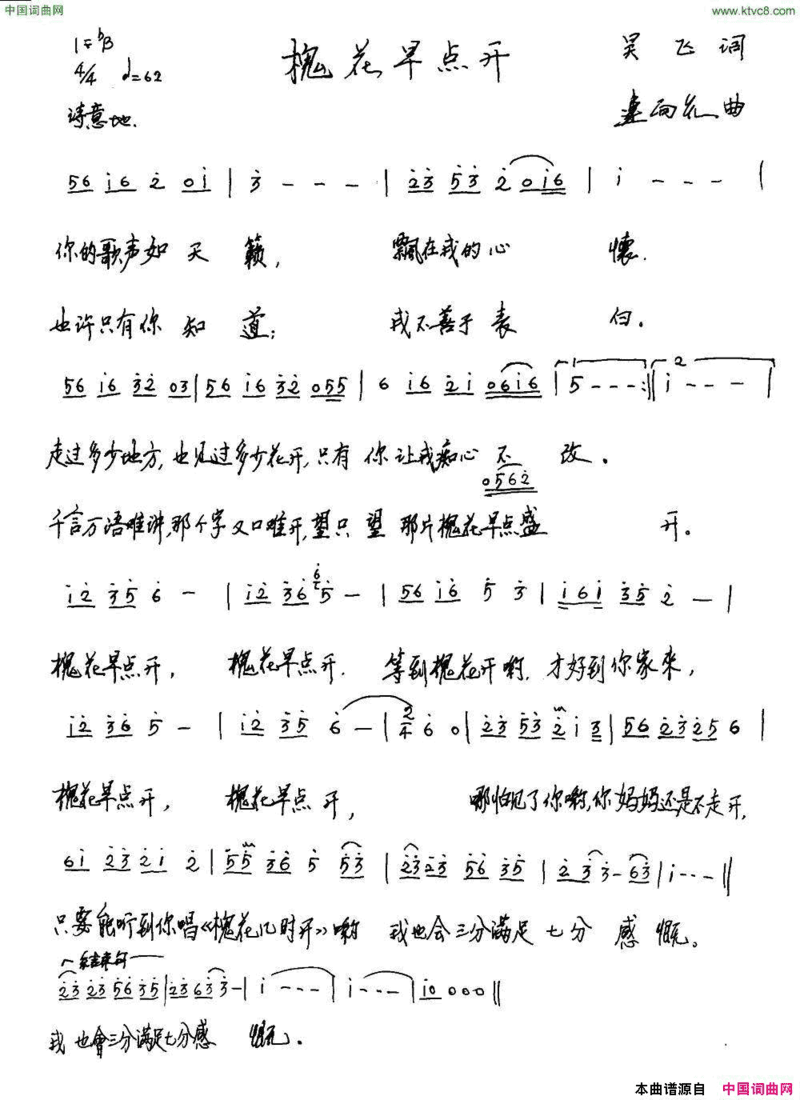 中国词曲网
www.ktvc8.com
1=♭B
4/4 ♩=62
槐花早点开
吴飞 词
曲
诗意地.
5 6 i 6 2 0 i | 3 - - - | 2 3 5 3 2 0 i 6 | i - - - |
你的歌声如天籁, 飘在我的心怀.
也许只有你知道; 我不善于表白。
5 6 i 6 3 2 0 3 | 5 6 i 6 3 2 0 5 5 | 6 i 6 2 i 0 6 i 6 | 1 5 - - - :|| 2 i - - - |
走过多少地方, 也见过多少花开, 只有你让我痴心不改。
0 5 6 2
千言万语难讲, 那个字又口难开, 望只望那片槐花早点盛开。
i 2 3 5 6 - | i 2 3 6 6 5 - | 5 6 i 6 5 3 | i 6 i 3 5 2 - |
槐花早点开, 槐花早点开. 等到槐花开哟, 才好到你家来,
i 2 3 6 5 - | i 2 3 5 6 - | 2/4 6 0 | 2 3 5 3 2 i 3 | 5 6 2 3 2 5 6 |
槐花早点开, 槐花早点开, 哪怕见了你哟, 你妈妈还是不走开,
6 i 2 3 2 i 2 | 5 5 3 6 5 5 3 | 2 3 2 3 5 6 3 5 | 2 3 3 - 6 3 | i - - - ||
只要能听到你唱《槐花几时开》哟 我也会三分满足七分感慨。
结束句
2 3 2 3 5 6 3 5 | 2 3 6 3 3 - | i - - - | i - - - | i 0 0 0 0 ||
我也會三分满足七分感慨。
本曲谱源自 中国词曲网